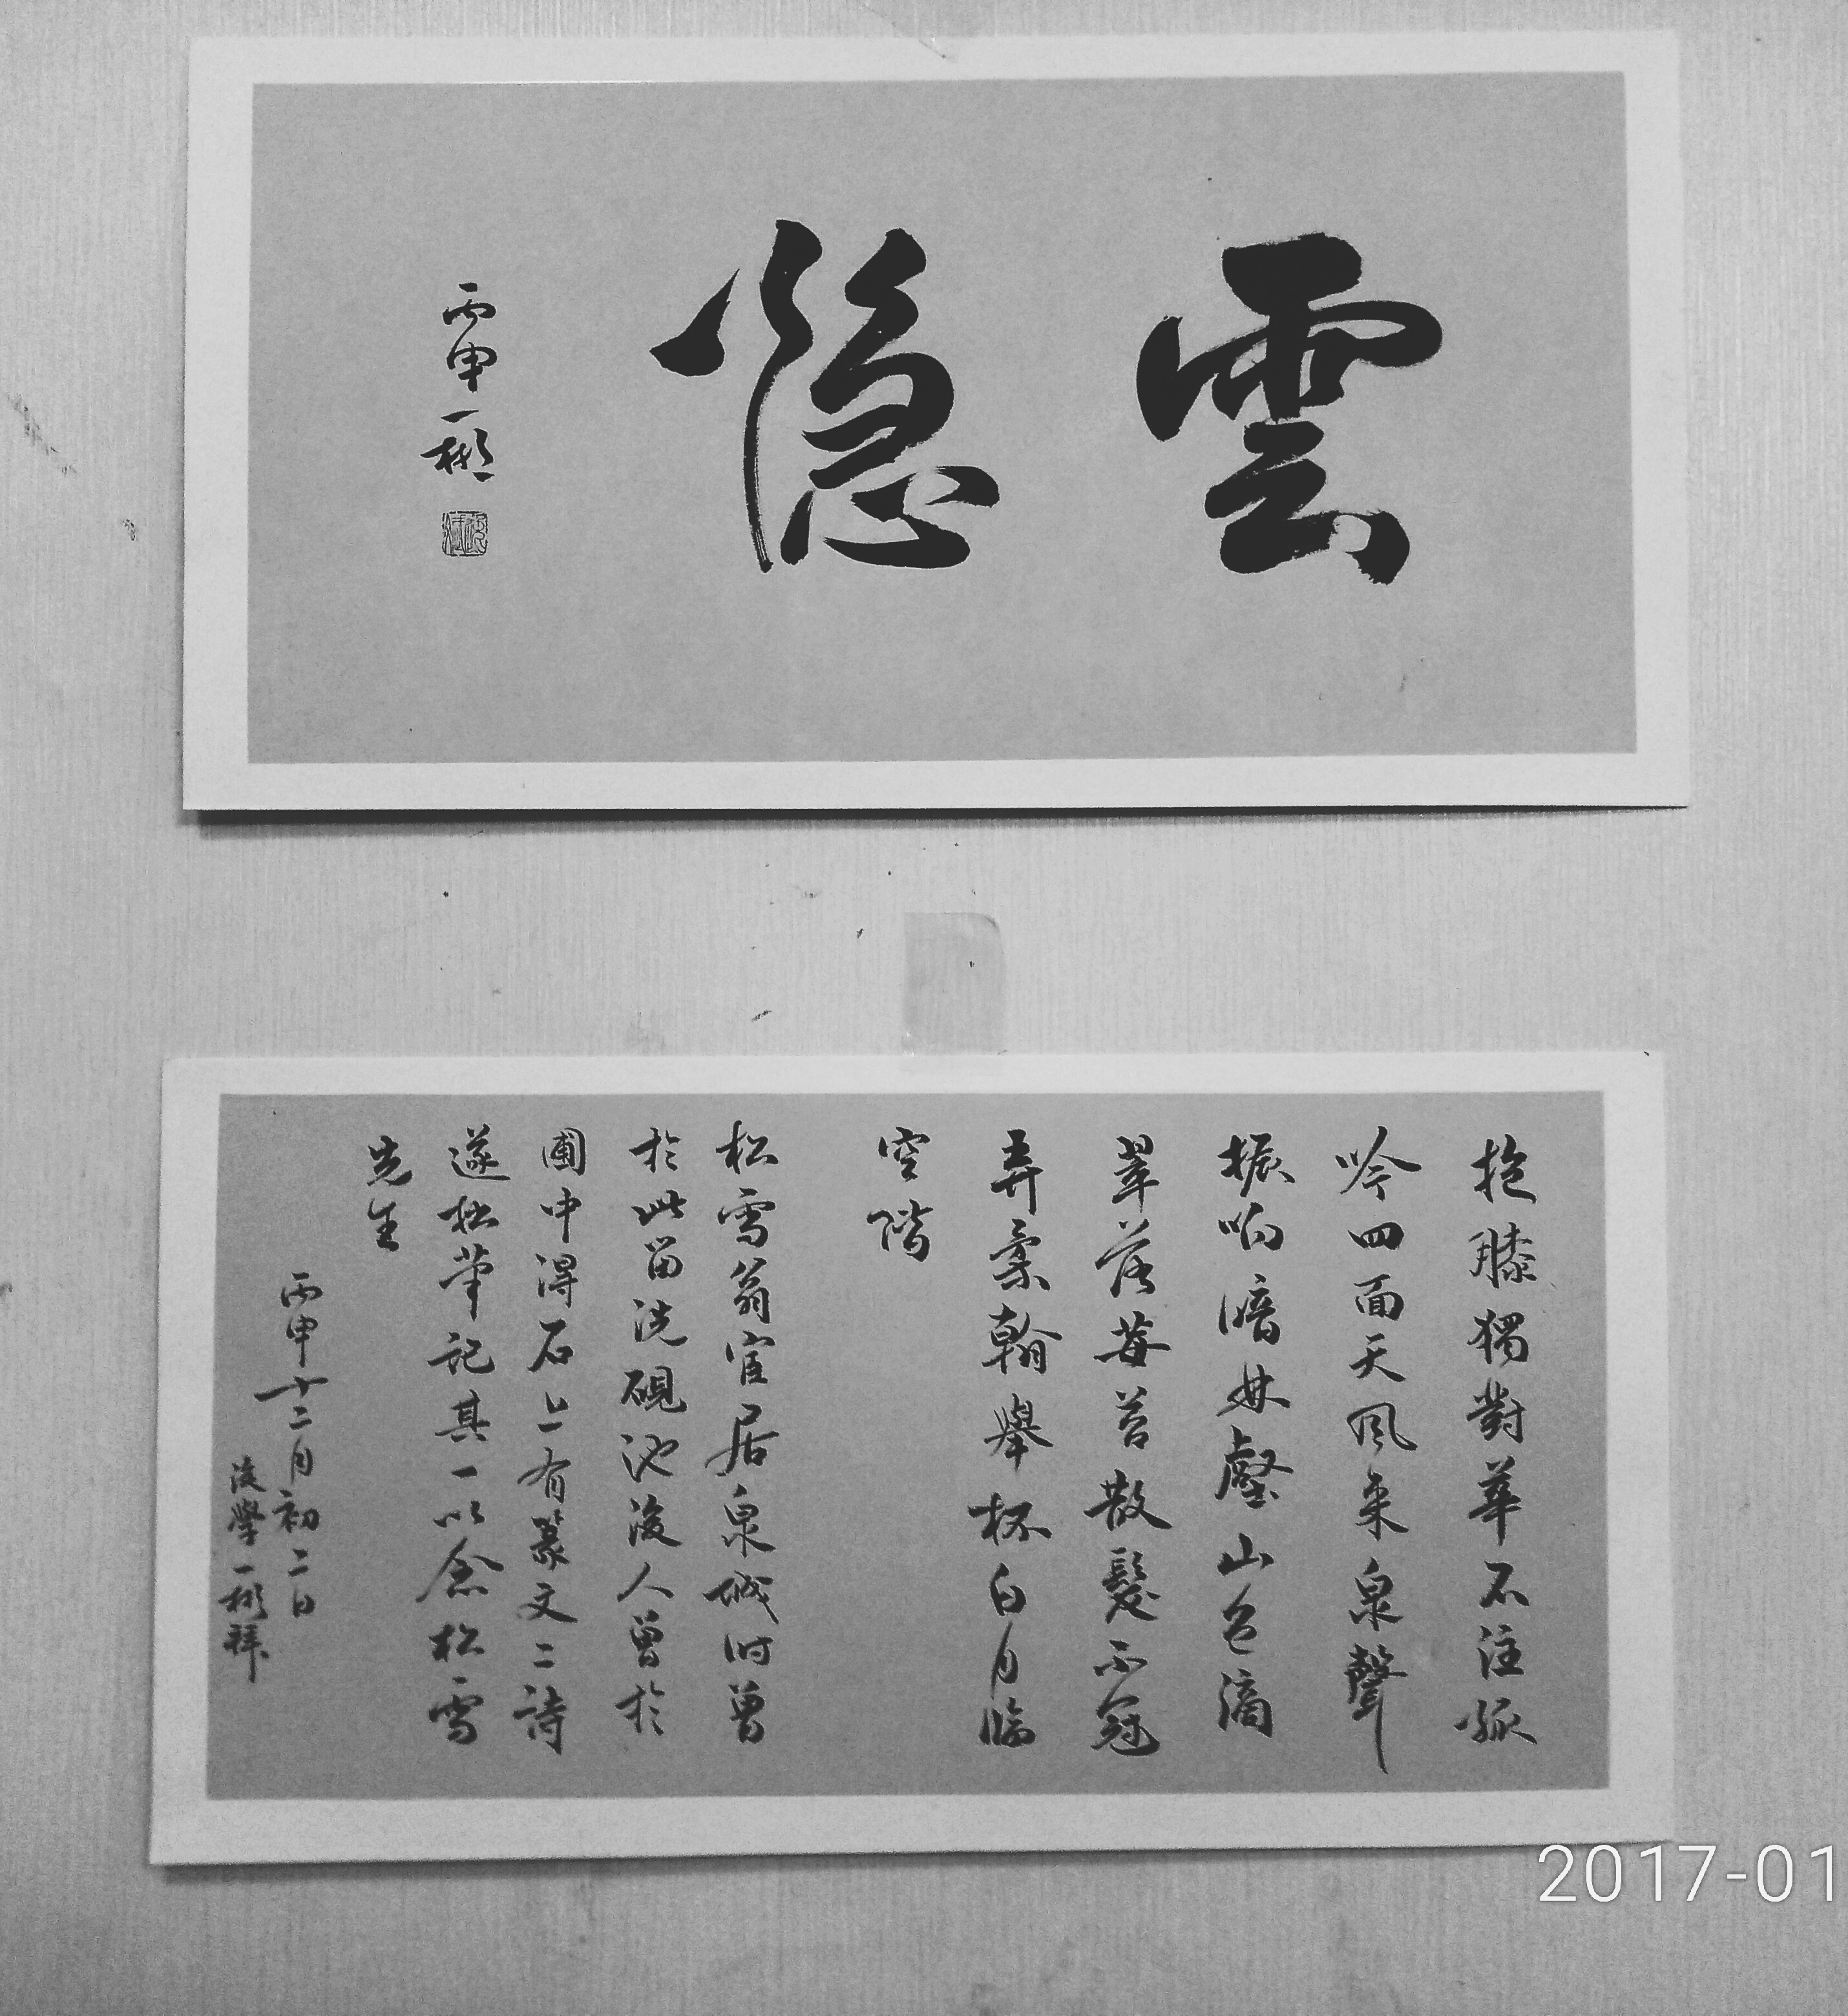 雲隐
丙申一彬
抱膝獨對華不注孤
吟四面天風來泉聲
振响暗林壑山色滴
翠落莓苔散髮不冠
弄柔翰舉杯白月臨
空階
松雪翁宦居泉城时曾
於此留洗硯池後人曾於
圃中得石上有篆文二詩
遂拈筆記其一以念松雪
先生
丙申十二月初二日
後學一彬拜
2017-01